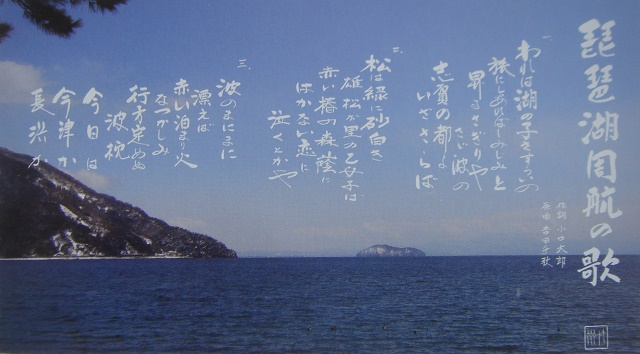 琵琶湖周航の歌
作詞 小口太郎
原曲 吉田千秋
一、
われは湖の子さすらいの
旅にしあればしみじみと
昇るさぎりや
さざ波の
志賀の都よ
いざさらば
二、
松は緑に砂白き
雄松が里の乙女子は
赤い椿の森蔭に
はかない恋に
泣くとかや
三、
波のまにまに
漂えば
赤い泊り火
なつかしみ
行方定めぬ
波枕
今日は
今津か
長浜か